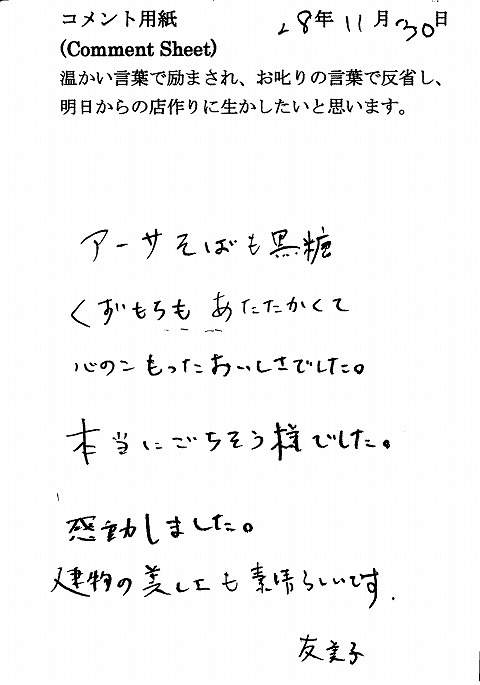 コメント用紙 28年11月30日
(Comment Sheet)
温かい言葉で励まされ、お叱りの言葉で反省し、
明日からの店作りに生かしたいと思います。
アーサそばも黒糖
くずもちも あたたかくて
心のこもったおいしさでした。
本当にごちそう様でした。
感動しました。
建物の美しさも素晴らしいです.
友美子